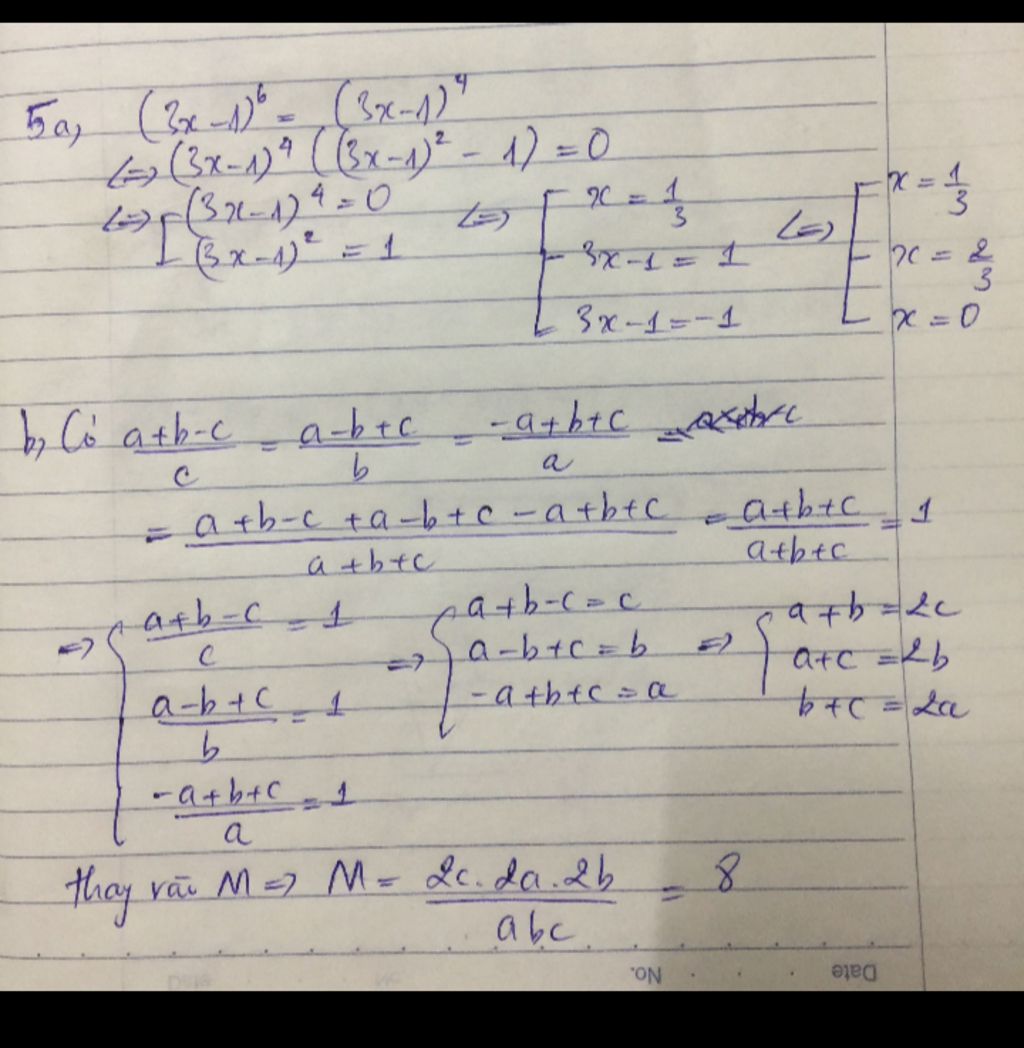 5a, (3x-1)⁶ = (3x-1)⁴
<=> (3x-1)⁴ ((3x-1)² - 1) = 0
<=> [ (3x-1)⁴ = 0 <=> [ x = 1/3 <=> [ x = 1/3
(3x-1)² = 1 3x-1 = 1 x = 2/3
3x-1 = -1 x = 0
b, Có (a+b-c)/c = (a-b+c)/b = (-a+b+c)/a =
= (a+b-c+a-b+c-a+b+c)/(a+b+c) = (a+b+c)/(a+b+c) = 1
=> { (a+b-c)/c = 1 => { a+b-c = c => { a+b = 2c
(a-b+c)/b = 1 a-b+c = b a+c = 2b
(-a+b+c)/a = 1 -a+b+c = a b+c = 2a
thay vào M => M = (2c.2a.2b)/(abc) = 8
No. Date